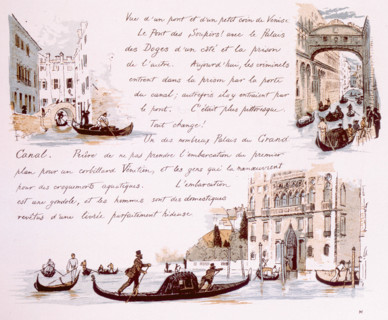 Vue d'un pont et d'un petit coin de Venise.
Le Pont des Soupirs! avec le Palais
des Doges d'un côté et la prison
de l'autre. Aujourd'hui, les criminels
entrent dans la prison par la porte
du canal; autrefois ils y entraient par
le pont. C'était plus pittoresque.
Tout change!
Un des nombreux Palais du Grand
Canal. Prière de ne pas prendre l'embarcation du premier
plan pour un corbillard Vénitien, et les gens qui la manœuvrent
pour des croquemorts aquatiques. L'embarcation
est une gondole, et les hommes sont des domestiques
revêtus d'une livrée parfaitement hideuse.